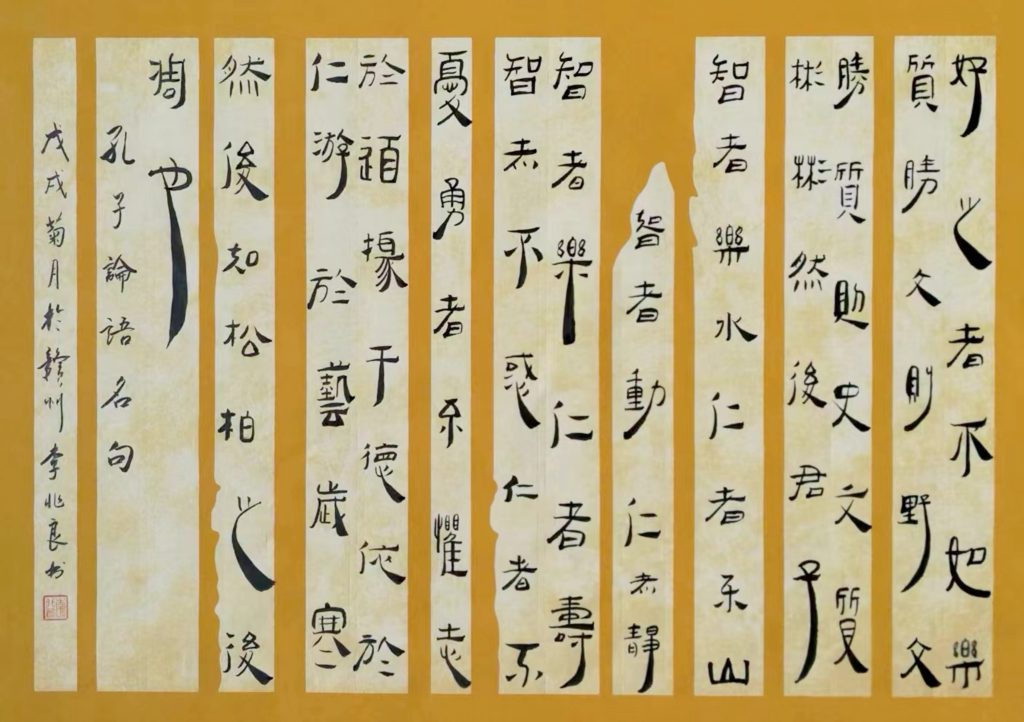 好之者不如樂
質勝文則野文
勝質則史文質
彬彬然後君子
智者樂水仁者乐山
智者動仁者靜
智者樂仁者壽
智者不惑仁者不
憂勇者不懼志
於道據于德依於
仁游於藝歲寒
然後知松柏之後
凋也
孔子論語名句
戊戌菊月於赣州李兆良书